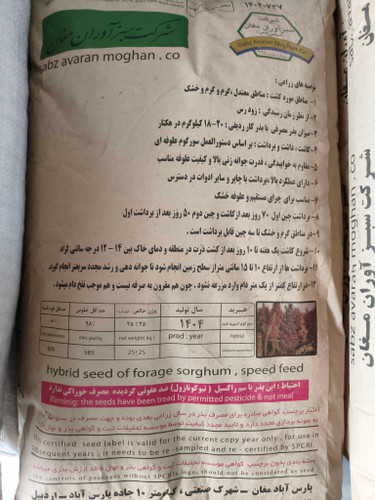 ۱۴۰۴-۷۳۷
شرکت سبز آوران مغان
sabz avaran moghan . co
شرکت
سبز آوران مغان
Sabz Avaran Moghan Co
توصیه های زراعی :
۱- مناطق مورد کشت : مناطق معتدل ،گرم و گرم و خشک
۲- از نظر زمان رسیدگی : زود رس
۳- میزان بذر مصرفی با بذر کار ردیفی : ۲۰-۱۸ کیلوگرم در هکتار
۴- کاشت ، داشت و برداشت : بر اساس دستورالعمل سورگوم علوفه ای
۵- مقاوم به خوابیدگی ، قدرت جوانه زنی بالا و کیفیت علوفه مناسب
۶- دارای عملکرد بالا ،برداشت با چاپر و سایر ادوات در دسترس
۷- مناسب برای چرای مستقیم و علوفه خشک
۸- برداشت چین اول ۷۰ روز بعد از کاشت و چین دوم ۵۰ روز بعد از برداشت اول
۹- در مناطق گرم و خشک تا سه چین قابل برداشت است
۱۰- شروع کاشت یک هفته تا ۱۰ روز بعد از کشت ذرت در منطقه و دمای خاک بین ۱۴ - ۱۲ درجه سانتی گراد
۱۱- برداشت ها از ارتفاع ۱۰ تا ۱۵ سانتی متراز سطح زمین انجام شود تا جوانه دهی و رشد مجدد سریعتر انجام گیرد.
۱۲- درارتفاع کمتر از یک متر دام وارد مزرعه نشود، چون هم مقرون به صرفه نیست و هم موجب نفخ دام میشود.
هیبرید
سال تولید
وزن خالص
۱۴۰۴
۲۵
۹۸٪
hybrid
prod . year
net weight( kg )
min. purity
speed feed
25
98%
hybrid seed of forage sorghum , speed feed
احتیاط : این بذر با سم راکسیل ( تبوکونازول) ضد عفونی گردیده، مصرف خوراکی ندارد
Warning: the seeds have been treated by permitted pesticide & not meal
certified seed label is valid for the current copy year only . for use in
subsequent years ; it needs to be re -sampled and re- certified by SPCRI.
پارس آباد مغان - شهرک صنعتی ، کیلومتر ۱۰ جاده پارس آباد - اردبیل
sabz avaran moghan . co
شرکت سبز آوران مغان